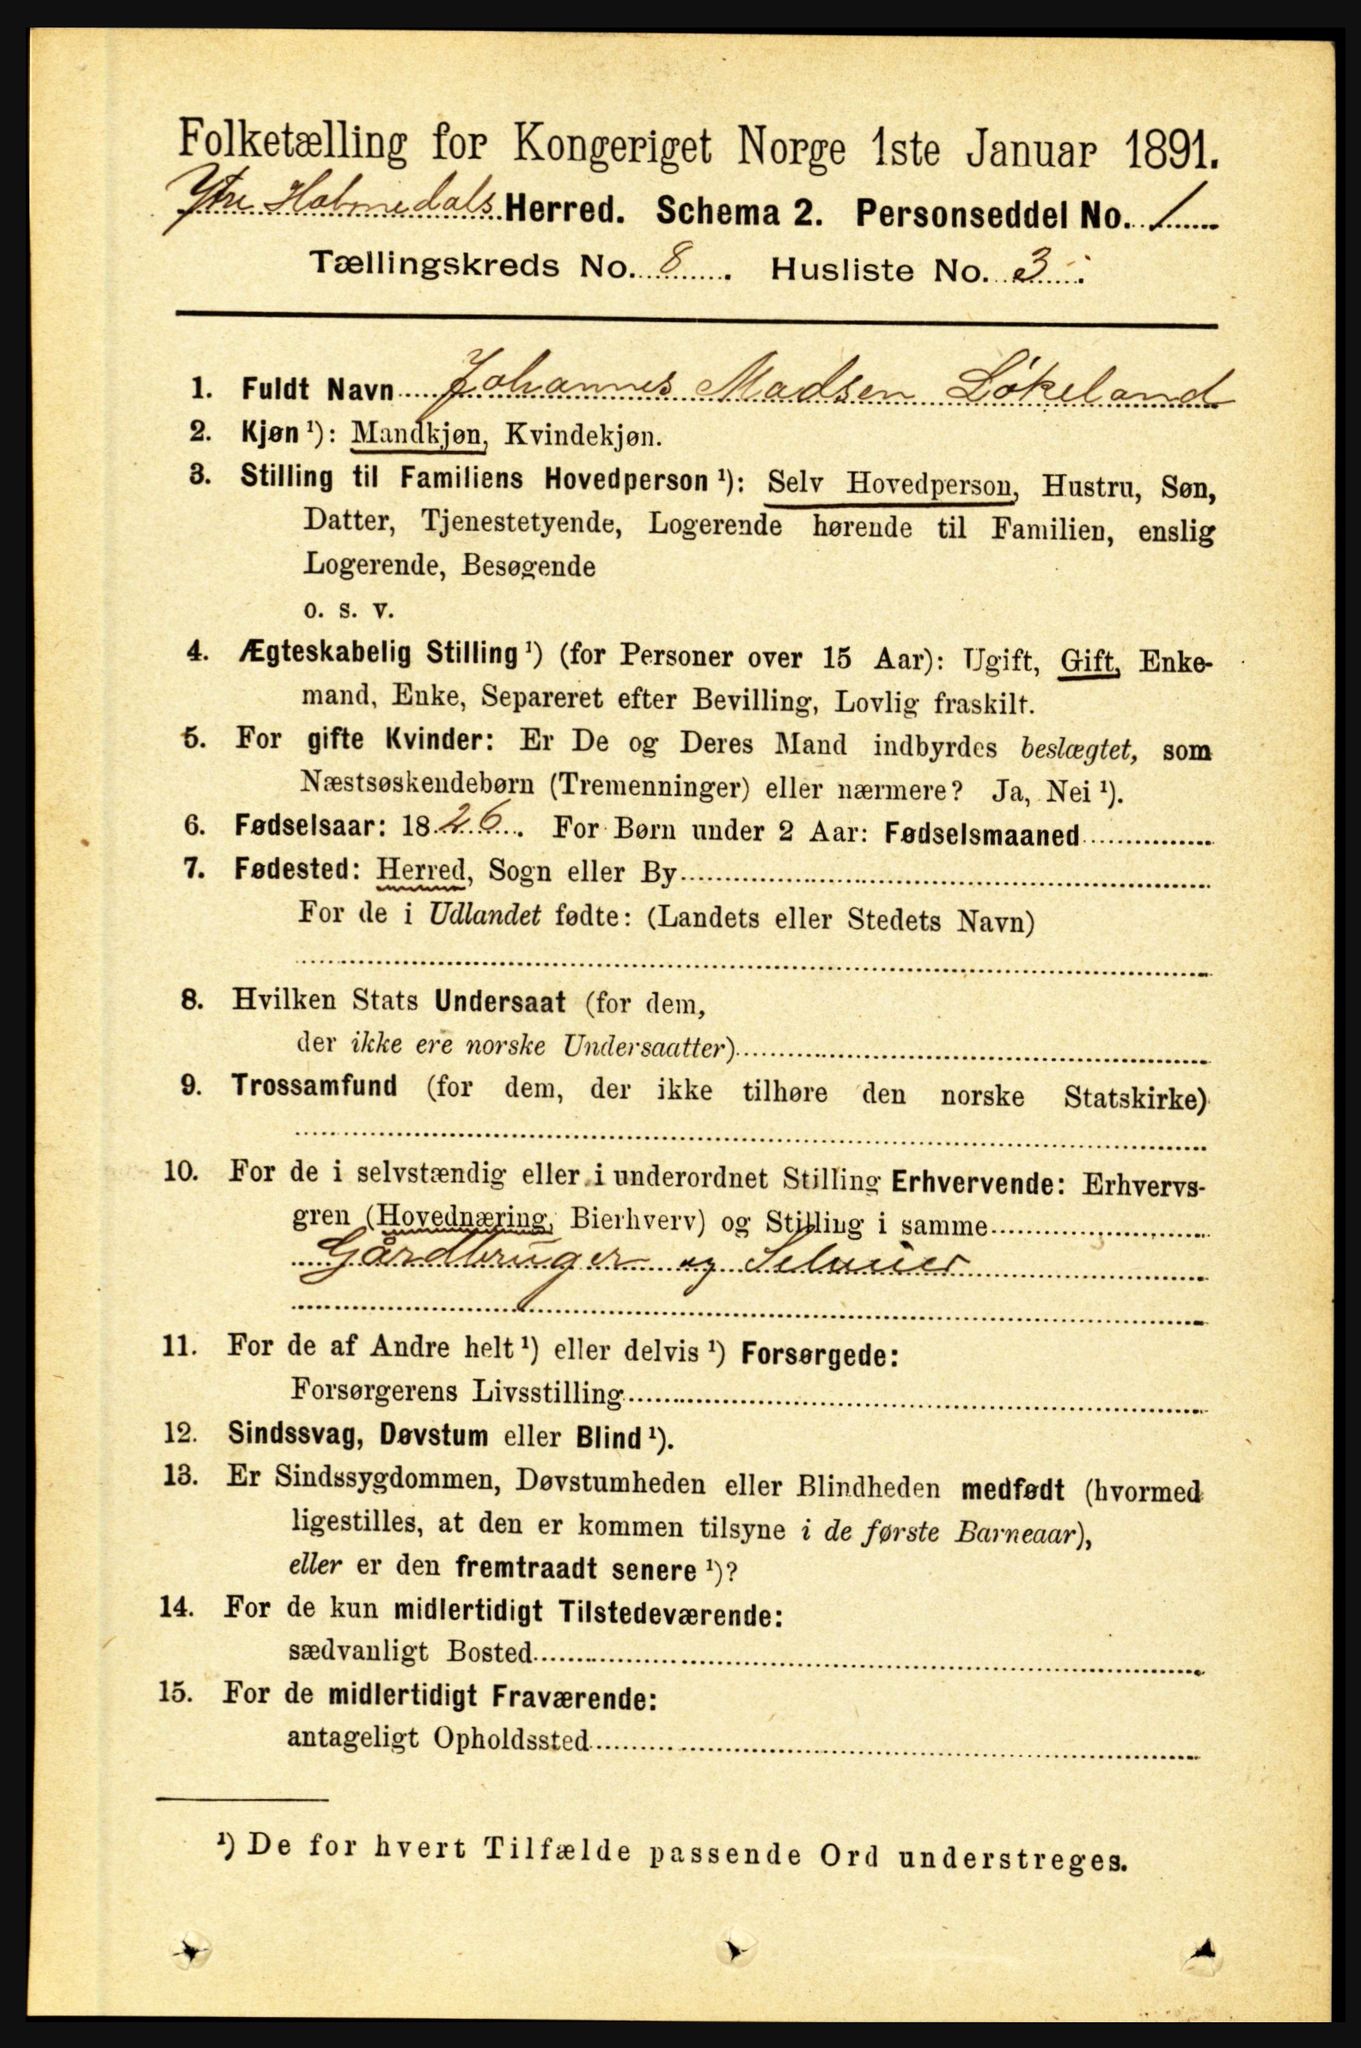 Folketælling for Kongeriget Norge 1ste Januar 1891.
Ytre Holmedals Herred. Schema 2. Personseddel No. 1
Tællingskreds No. 8. Husliste No. 3.
1. Fuldt Navn Johannes Madsen Løkeland
2. Kjøn ¹): Mandkjøn, Kvindekjøn.
3. Stilling til Familiens Hovedperson ¹): Selv Hovedperson, Hustru, Søn,
Datter, Tjenestetyende, Logerende hørende til Familien, enslig
Logerende, Besøgende
o. s. v.
4. Ægteskabelig Stilling ¹) (for Personer over 15 Aar): Ugift, Gift, Enke-
mand, Enke, Separeret efter Bevilling, Lovlig fraskilt.
5. For gifte Kvinder: Er De og Deres Mand indbyrdes beslægtet, som
Næstsøskendebørn (Tremenninger) eller nærmere? Ja, Nei ¹).
6. Fødselsaar: 1826. For Børn under 2 Aar: Fødselsmaaned
7. Fødested: Herred, Sogn eller By
For de i Udlandet fødte: (Landets eller Stedets Navn)
8. Hvilken Stats Undersaat (for dem,
der ikke ere norske Undersaatter)
9. Trossamfund (for dem, der ikke tilhøre den norske Statskirke)
10. For de i selvstændig eller i underordnet Stilling Erhvervende: Erhvervs-
gren (Hovednæring, Bierhverv) og Stilling i samme
Gårdbruger og Selveier
11. For de af Andre helt ¹) eller delvis ¹) Forsørgede:
Forsørgerens Livsstilling
12. Sindssvag, Døvstum eller Blind ¹).
13. Er Sindssygdommen, Døvstumheden eller Blindheden medfødt (hvormed
ligestilles, at den er kommen tilsyne i de første Barneaar),
eller er den fremtraadt senere ¹)?
14. For de kun midlertidigt Tilstedeværende:
sædvanligt Bosted
15. For de midlertidigt Fraværende:
antageligt Opholdssted
¹) De for hvert Tilfælde passende Ord understreges.